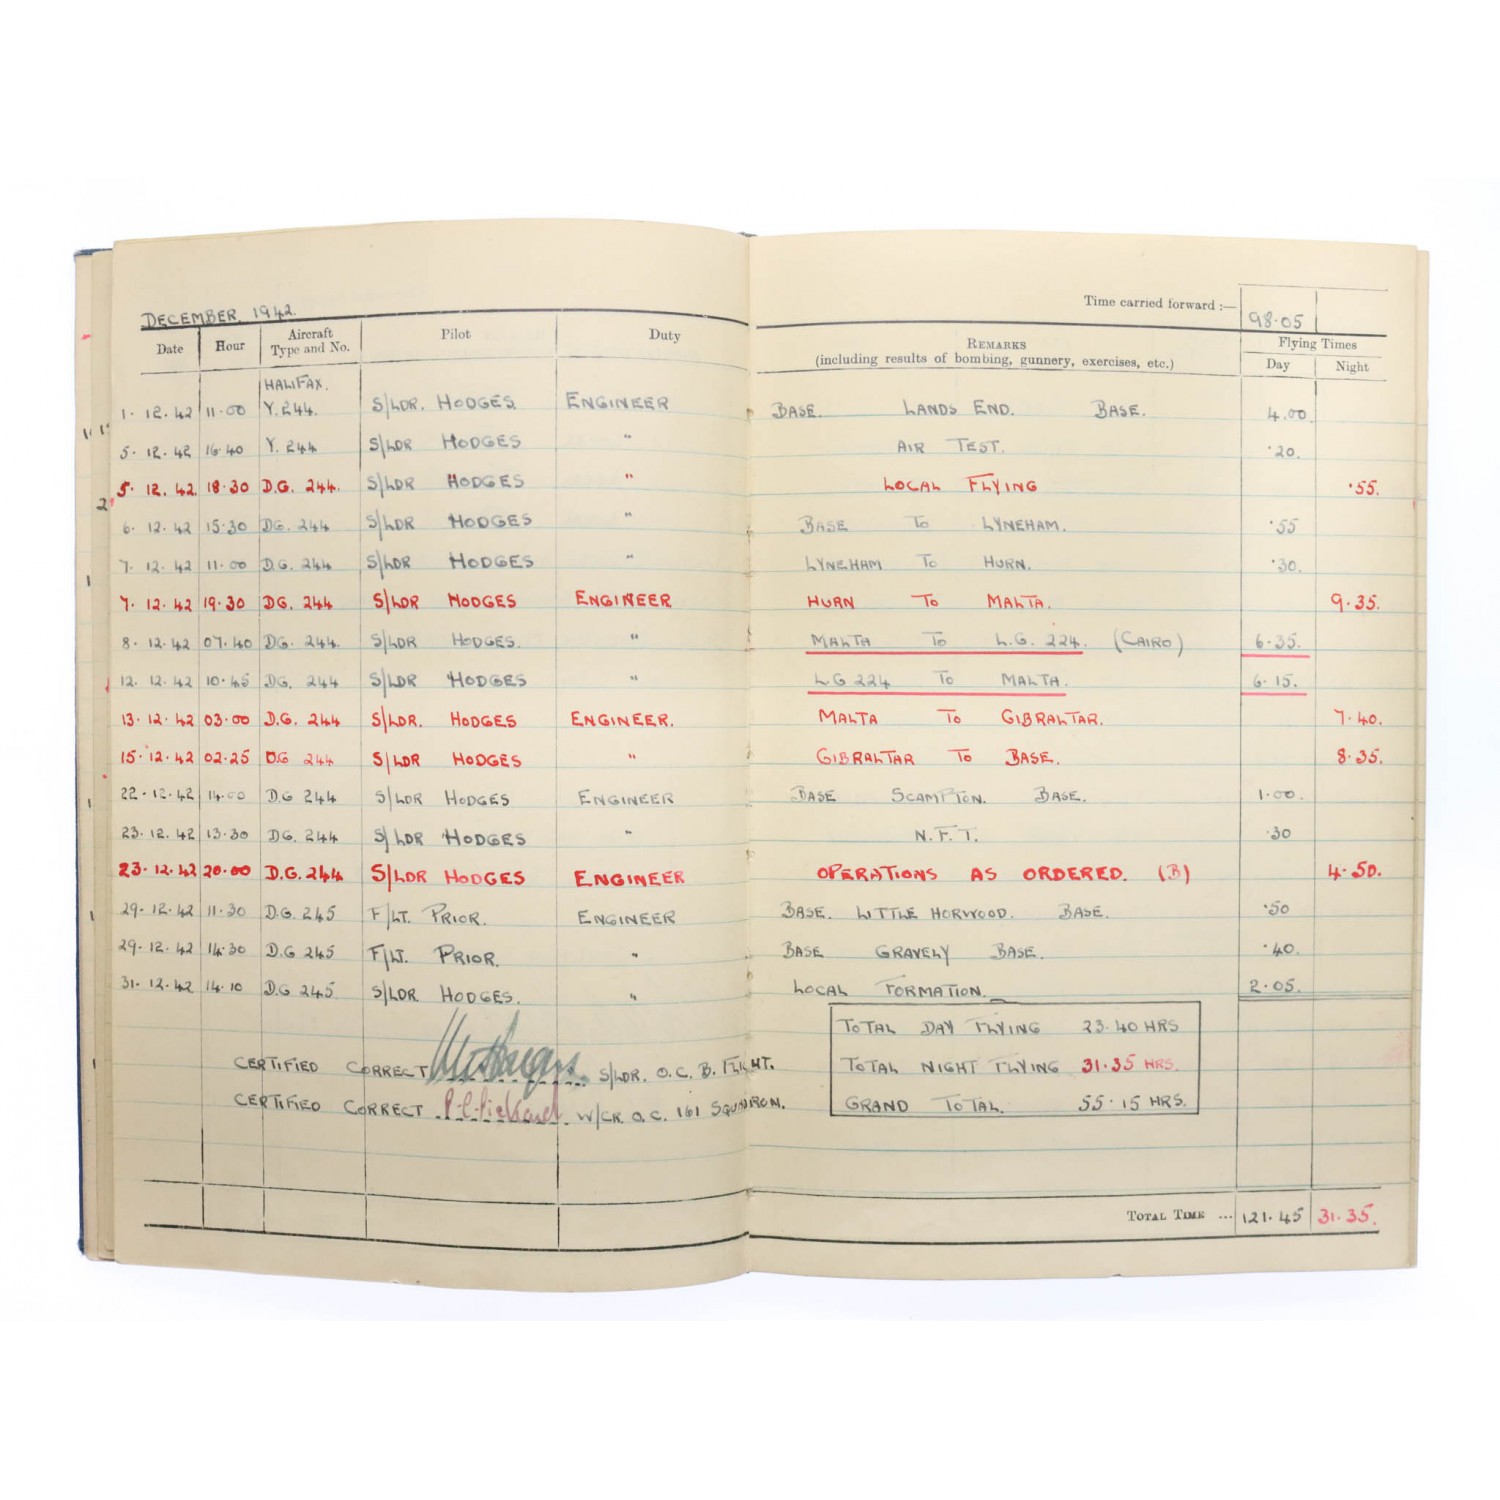 DECEMBER. 1942.
Time carried forward :— 98·05
Date Hour Aircraft Type and No. Pilot Duty REMARKS (including results of bombing, gunnery, exercises, etc.) Flying Times Day Night
HALIFAX.
1. 12. 42 11·00 Y. 244. S/LDR. HODGES. ENGINEER BASE. LANDS END. BASE. 4.00.
5. 12. 42 16·40 Y. 244 S/LDR HODGES " AIR TEST. ·20.
5. 12. 42. 18·30 D.G. 244. S/LDR HODGES " LOCAL FLYING ·55.
6. 12. 42 15·30 DG. 244 S/LDR HODGES " BASE TO LYNEHAM. ·55
7. 12. 42 11·00 D.G. 244 S/LDR HODGES " LYNEHAM TO HURN. ·30.
7. 12. 42 19·30 DG. 244 S/LDR HODGES ENGINEER HURN TO MALTA. 9·35.
8. 12. 42 07.40 DG. 244. S/LDR HODGES. " MALTA TO L.G. 224. (CAIRO) 6·35.
12. 12. 42 10·45 DG. 244 S/LDR HODGES " L.G 224 TO MALTA. 6·15.
13. 12. 42 03·00 D.G. 244 S/LDR. HODGES ENGINEER. MALTA TO GIBRALTAR. 7·40.
15. 12. 42 02·25 D.G 244 S/LDR HODGES " GIBRALTAR TO BASE. 8·35.
22. 12. 42 14·00 D.G 244 S/LDR HODGES ENGINEER BASE SCAMPTON. BASE. 1·00.
23. 12. 42 13·30 DG. 244 S/LDR HODGES " N.F.T. ·30
23. 12. 42 20·00 D.G. 244 S/LDR HODGES ENGINEER OPERATIONS AS ORDERED. (B) 4·50.
29. 12. 42 11·30 D.G. 245 F/LT. PRIOR. ENGINEER BASE. LITTLE HORWOOD. BASE. ·50
29. 12. 42 14·30 D.G 245 F/LT. PRIOR. " BASE GRAVELY BASE. ·40.
31. 12. 42 14·10 D.G 245 S/LDR. HODGES. " LOCAL FORMATION. 2·05.
TOTAL DAY FLYING 23·40 HRS
CERTIFIED CORRECT S/LDR. O.C. B. FLIGHT. TOTAL NIGHT FLYING 31·35 HRS.
CERTIFIED CORRECT P.C. Pickard W/CR. O.C. 161 SQUADRON. GRAND TOTAL. 55·15 HRS.
TOTAL TIME ... 121·45 31·35.